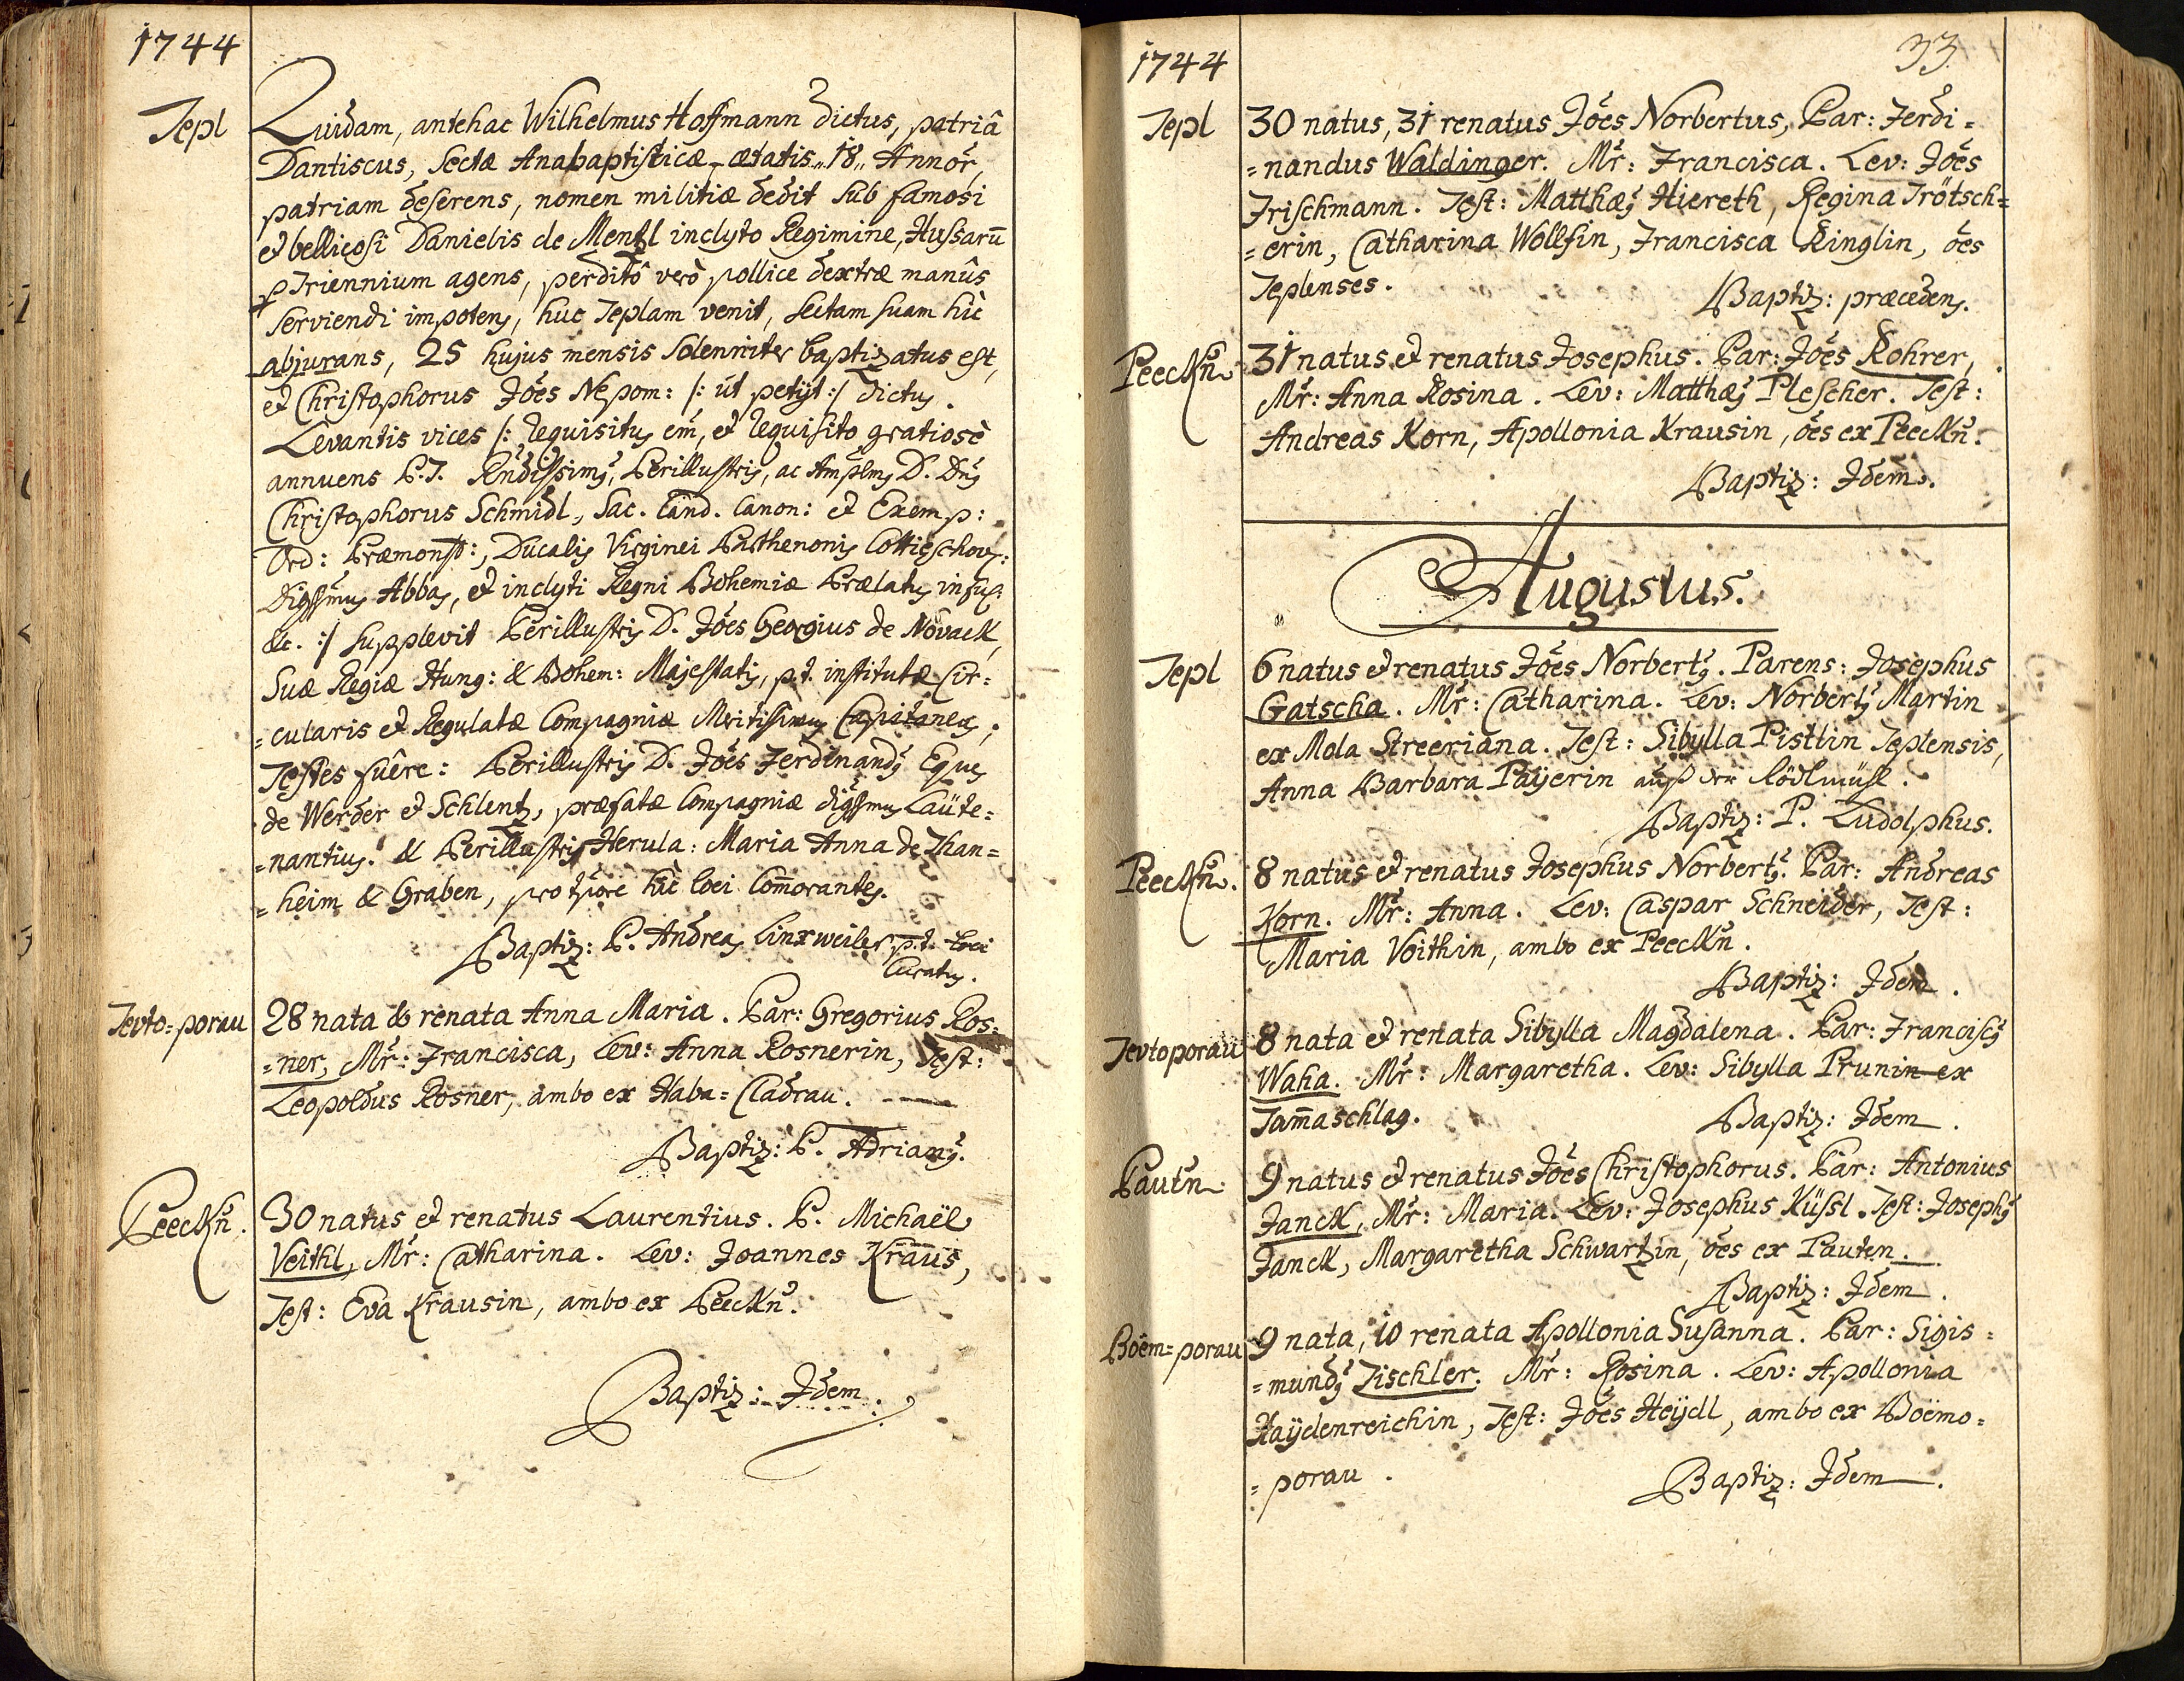 1744
Tepl
Quidam, antehac Wilhelmus Hoffmann dictus, patriâ
Dantiscus, Sectæ Anabaptisticæ, ætatis „18„ Annor,
patriam deserens, nomen militiæ dedit sub famosi
et bellicosi Danielis de Mentzl inclyto Regimine, Hussarū
p Triennium agens, perditô verò pollice dextræ manûs
serviendi impotens, huc Teplam venit, sectam suam hîc
abjurans, 25 hujus mensis Solenniter baptizatus est,
et Christophorus Jōes Nepom: /: ut petijt :/ dictus.
Levantis vices /: requisitus em, et requisito gratiosè
annuens P.T. Rndissimus, Perillustris, ac Amplmus D. Dnus
Christophorus Schmidl, Sac. Cand. Canon: et Exemp:
Ord: Præmonst:, Ducalis Virginei Parthenonis Cottieschov:
Digssmus Abbas, et inclyti Regni Bohemiæ Prælatus inful:
&c. :/ supplevit Perillustris D. Jōes Georgius de Novack,
Suæ Regiæ Hung: & Bohem: Majestatis, p.t. institutæ Cir=
=cularis et Regulatæ Compagniæ Meritissimus Capitaneus;
Testes fuêre: Perillustris D. Jōes Ferdinandus Eques
de Werder et Schlentz, præfatæ Compagniæ digssmus Laüte=
=nantius. & Perillustris Herula: Maria Anna de Than=
=heim & Graben, pro tpore hîc loci Com̄orantes.
Baptiz: P. Andreas Linxweiler p.t. loci
Curatus.
Tevto=porau
28 nata & renata Anna Maria. Par: Gregorius Ros=
=ner, Mr: Francisca, Lev: Anna Rosnerin, Test:
Leopoldus Rosner, ambo ex Haba=Cladrau.
Baptiz: P. Adrianus.
Peeckn.
30 natus et renatus Laurentius. P. Michaël
Veithl, Mr: Catharina. Lev: Joannes Kraus,
Test: Eva Krausin, ambo ex Peeckn.
Baptiz: Idem.
1744
33
Tepl
30 natus, 31 renatus Jōes Norbertus, Par: Ferdi=
=nandus Waldinger. Mr: Francisca. Lev: Jōes
Frischmann. Test: Matthæus Hiereth, Regina Trötsch=
=erin, Catharina Wollfin, Francisca Ringlin, ōes
Teplenses.
Baptiz: præcedens.
Peeckn.
31 natus et renatus Josephus. Par: Jōes Rohrer,
Mr: Anna Rosina. Lev: Matthæus Plescher. Test:
Andreas Korn, Apollonia Krausin, ōes ex Peeckn.
Baptiz: Idem.
Augustus.
Tepl
6 natus et renatus Jōes Norbertus. Parens: Josephus
Gatscha. Mr: Catharina. Lev: Norbertus Martin
ex Mola Streeriana. Test: Sibylla Pisttin Teplensis,
Anna Barbara Paÿerin auß der Rödlmühl.
Baptiz: P. Ludolphus.
Peeckn.
8 natus et renatus Josephus Norbertus. Par: Andreas
Korn. Mr: Anna. Lev: Caspar Schneider, Test:
Maria Voithin, ambo ex Peeckn.
Baptiz: Idem.
Tevtoporau
8 nata et renata Sibylla Magdalena. Par: Franciscus
Waha. Mr: Margaretha. Lev: Sibylla Prunin ex
Tam̄aschlag.
Baptiz: Idem.
Pautn.
9 natus et renatus Jōes Christophorus. Par: Antonius
Janck, Mr: Maria. Lev: Josephus Küssl. Test: Josephus
Janck, Margaretha Schwartzin, ōes ex Pauten.
Baptiz: Idem.
Böem=porau
9 nata, 10 renata Apollonia Susanna. Par: Sigis=
=mundus Tischler. Mr: Rosina. Lev: Apollonia
Haÿdenreichin, Test: Jōes Heÿdl, ambo ex Boëmo=
=porau.
Baptiz: Idem.